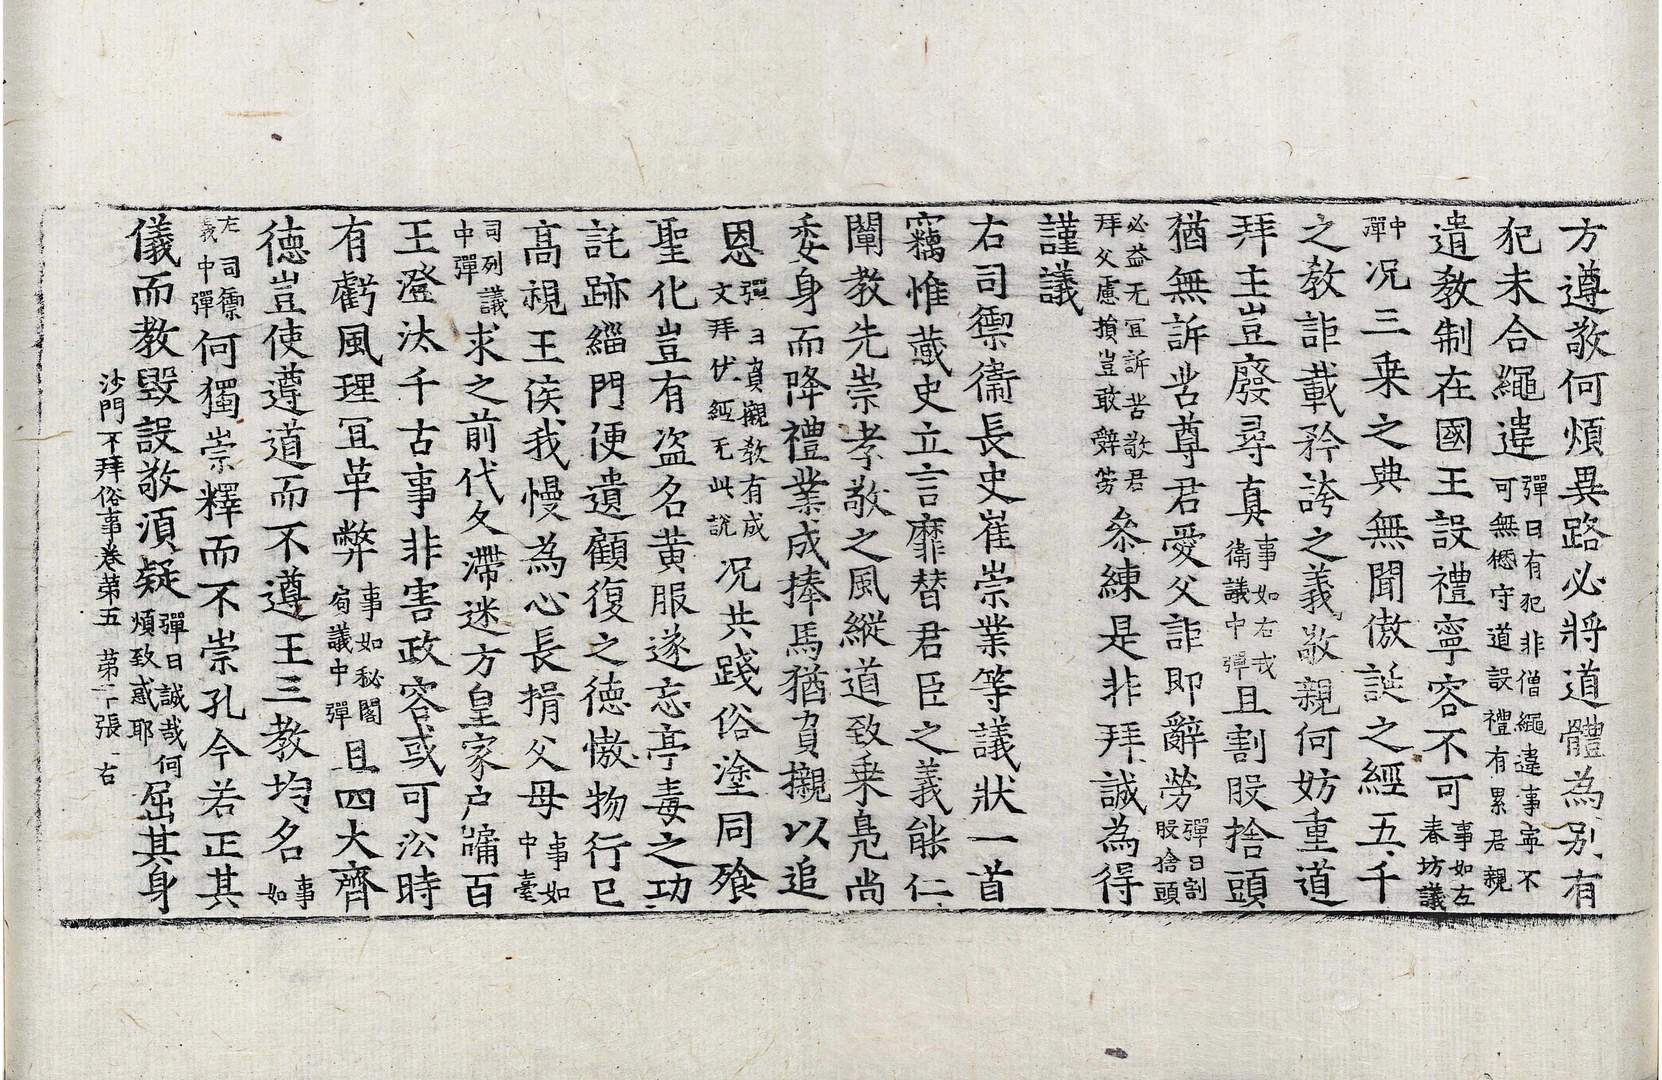 方遵敬何煩異路必將道體為別有
犯未合繩違彈曰有犯非僧繩違事寧不可無懲守道設禮有累君親
遣敎制在國王設禮寧容不可事如左春坊議
中彈况三乗之典無聞傲誕之經五千
之敎詎載矜誇之義敬親何妨重道
拜主豈廢尋真事如右戎衛議中彈且割股捨頭
猶無訴苦尊君愛父詎即辭勞彈曰割股捨頭
必益无冝訴苦敬君拜父慮損豈敢辤劳叅練是非拜誠為得
謹議
右司禦衛長史崔崇業等議狀一首
竊惟藏史立言靡替君臣之義能仁
闡教先崇孝敬之風縱道致乗鳧尚
委身而降禮業成捧馬猶負櫬以追
恩彈曰真觀敎有成文拜伏經无此說况共踐俗塗同飱
聖化豈有盜名黄服遂忘亭毒之功
託跡緇門便遺顧復之德慠物行已
高視王侯我慢為心長揖父母事如中臺
司列議中彈求之前代夂滯迷方皇家户牗百
王澄汰千古事非害政容或可㳂時
有虧風理冝革弊事如秘閣局議中彈且四大齊
德豈使遵道而不遵王三教均名事如
左司禦議中彈何獨崇釋而不崇孔今若正其
儀而教毀設敬湏疑彈曰誠哉何煩致惑耶屈其身
沙門不拜俗事卷苐五　苐二十張　右